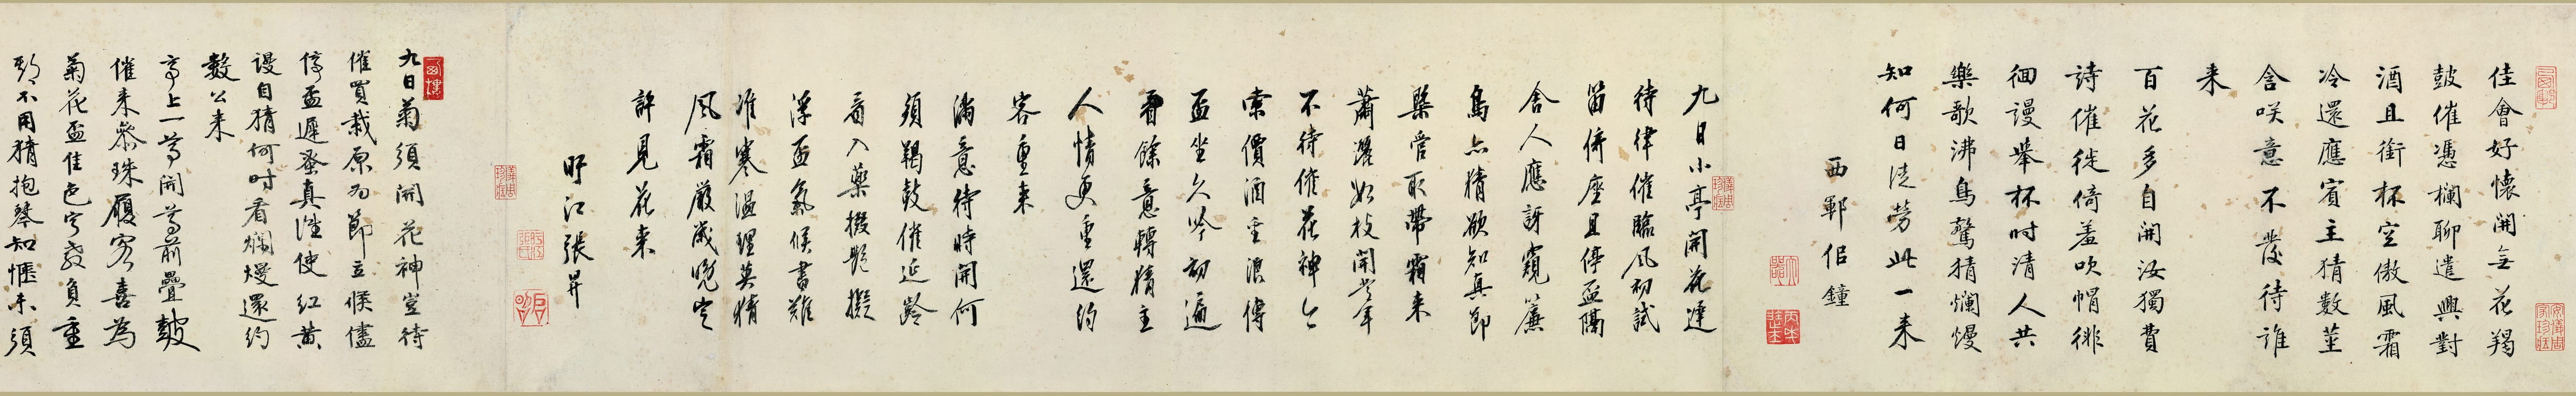 佳會好懷開無花羯
鼓催憑欄聊遣興對
酒且銜杯空傲風霜
冷還應賓主猜數莖
含笑意不發待誰
来
百花多自開汝獨費
詩催徙倚羞吹帽徘
徊謾舉杯时清人共
樂歌沸鳥驚猜爛熳
知何日徒勞此一来
西鄆侣鐘
九日小亭開花遲
待律催臨风初試
笛傍座且停盃隔
舍人應訝窺簾
鳥亦猜欲知真節
槩管取帶霜来
蕭灑如枝開當年
不待催花神今
索價酒重浪傳
盃坐久吟初遍
看餘意轉猜主
人情更重還約
客重来
滿意待時開何
須羯鼓催延齡
看入藥掇艶擬
浮盃氣候書難
准寒溫理莫猜
风霜嚴歲晚定
許見花来
盱江張昇
九日菊須開花神豈待
催買栽原为節立候儘
停盃遲蚤真誰使紅黄
謾自猜何时看爛熳還約
數公来
亭上一尊開尊前疊鼓
催来參珠履客喜為
菊花盃佳色寧教負重
期不用猜抱琴知惬未須